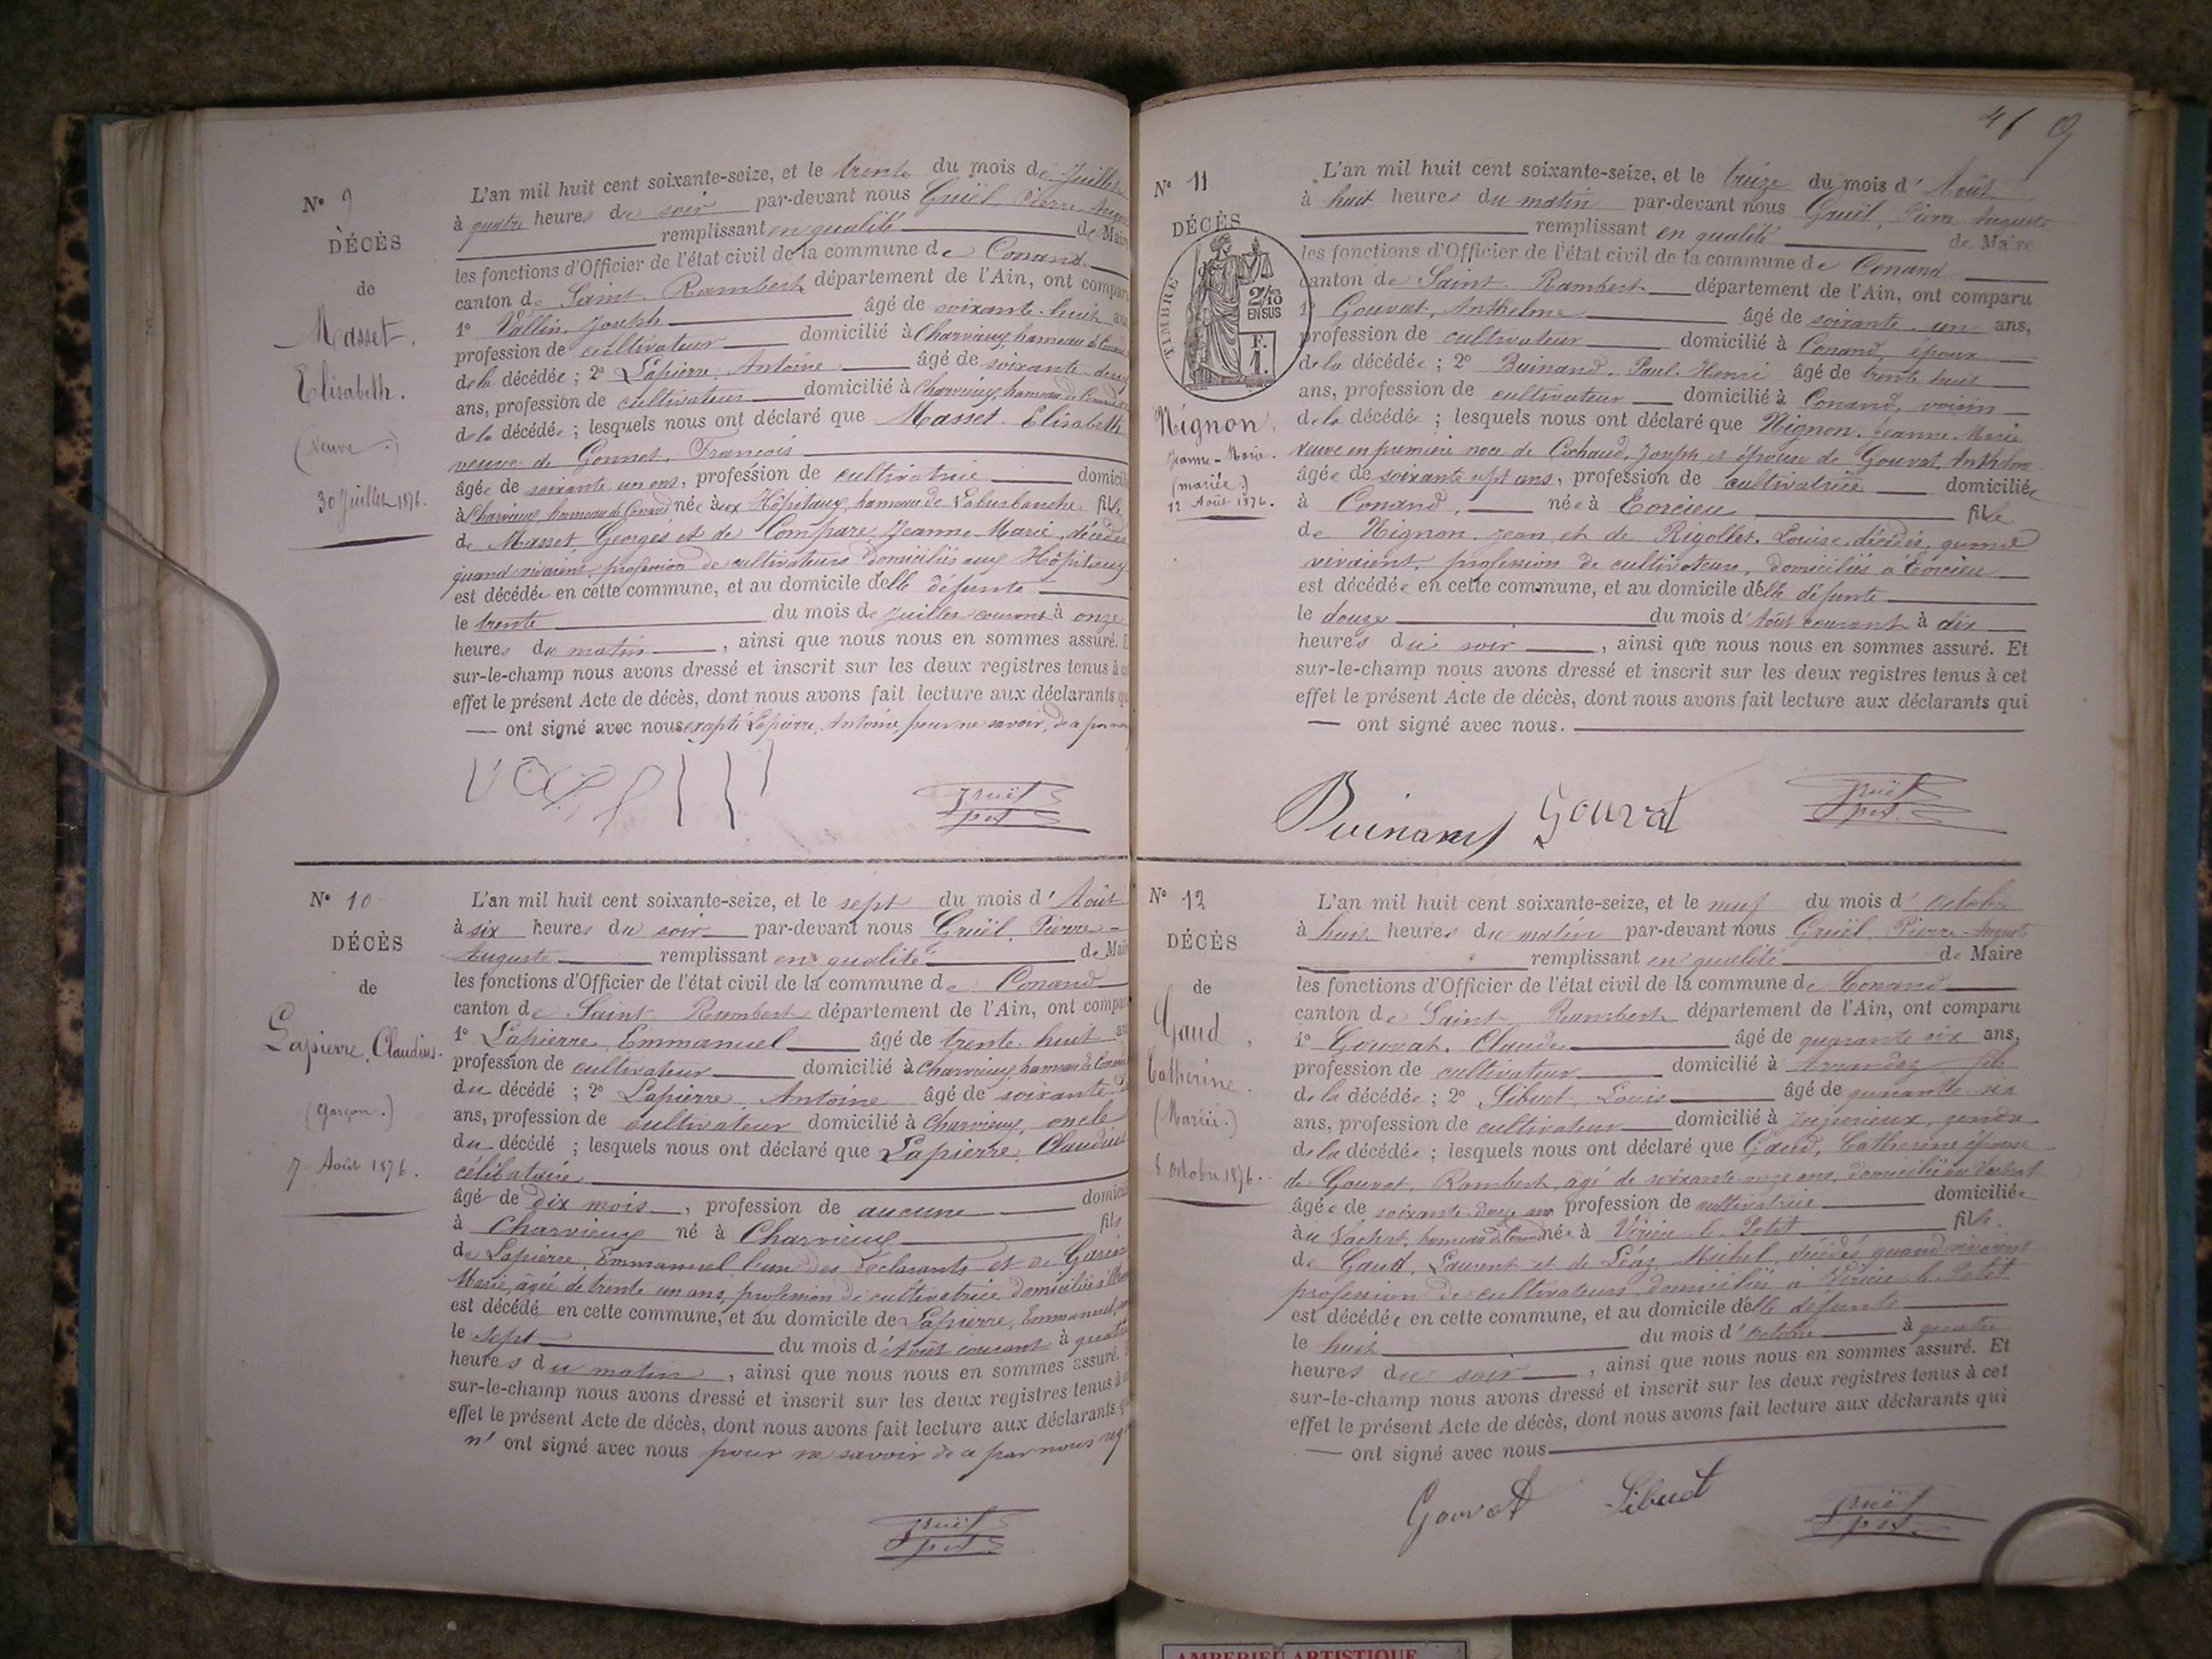 N° 9
DÉCÈS
de
Masset,
Elisabeth.
(Veuve.)
30 Juillet 1876.
L'an mil huit cent soixante-seize, et le trente du mois de Juillet
à quatre heures du soir par-devant nous Gruël, Pierre
remplissant en qualité de Maire
les fonctions d'Officier de l'état civil de la commune de Conand
canton de Saint-Rambert département de l'Ain, ont
1° Vallin, Joseph âgé de soixante-huit
profession de cultivateur domicilié à Charvieux, hameau de
de la décédée ; 2° Lapierre, Antoine âgé de soixante
ans, profession de cultivateur domicilié à Charvieux, hameau de Conand
de la décédée ; lesquels nous ont déclaré que Masset, Elisabeth
veuve de Gonnet, François
âgée de soixante un ans, profession de cultivatrice
à Charvieux, hameau de Conand née aux Hôpitaux, hameau de fille
de Masset, Georges et de Compare, Jeanne-Marie, décédés
quand vivaient, profession de cultivateurs domiciliés aux Hôpitaux
est décédée en cette commune, et au domicile d'elle défunte
le trente du mois de Juillet courant à onze
heures du matin, ainsi que nous nous en sommes assuré.
sur-le-champ nous avons dressé et inscrit sur les deux registres tenus à
effet le présent Acte de décès, dont nous avons fait lecture aux déclarants
— ont signé avec nous excepté Lapierre, Antoine, pour ne savoir, de a par
Gruël
N° 10
DÉCÈS
de
Lapierre, Claudius.
(Garçon.)
7 Août 1876.
L'an mil huit cent soixante-seize, et le sept du mois d'Août
à six heures du soir par-devant nous Gruël, Pierre-
Auguste remplissant en qualité de
les fonctions d'Officier de l'état civil de la commune de Conand
canton de Saint-Rambert département de l'Ain, ont
1° Lapierre, Emmanuel âgé de trente-huit
profession de cultivateur domicilié à Charvieux, hameau de
du décédé ; 2° Lapierre, Antoine âgé de soixante
ans, profession de cultivateur domicilié à Charvieux, oncle
du décédé ; lesquels nous ont déclaré que Lapierre, Claudius
célibataire
âgé de dix mois, profession de aucune
à Charvieux né à Charvieux fils
de Lapierre, Emmanuel l'un des déclarants et de
Marie, âgée de trente un ans, profession de cultivatrice domiciliés
est décédé en cette commune, et au domicile de Lapierre, Emmanuel,
le sept du mois d'Août courant à quatre
heures du matin, ainsi que nous nous en sommes assuré.
sur-le-champ nous avons dressé et inscrit sur les deux registres tenus à
effet le présent Acte de décès, dont nous avons fait lecture aux déclarants
n' ont signé avec nous pour ne savoir de a par nous
Gruël
46 9
N° 11
DÉCÈS
TIMBRE
2/10
EN SUS
F.
1.
Nignon,
Jeanne-Marie.
(mariée.)
12 Août 1876.
L'an mil huit cent soixante-seize, et le treize du mois d'Août
à huit heures du matin par-devant nous Gruël, Pierre Auguste
remplissant en qualité de Maire
les fonctions d'Officier de l'état civil de la commune de Conand
canton de Saint-Rambert département de l'Ain, ont comparu
1° Gouvat, Anthelme âgé de soixante-un ans,
profession de cultivateur domicilié à Conand, époux
de la décédée ; 2° Buinand, Paul-Henri âgé de trente huit
ans, profession de cultivateur domicilié à Conand, voisin
de la décédée ; lesquels nous ont déclaré que Nignon, Jeanne-Marie
veuve en première noce de Cochaud, Joseph et épouse de Gouvat, Anthelme
âgée de soixante sept ans, profession de cultivatrice domiciliée
à Conand, née à Torcieu fille
de Nignon, Jean et de Rigollet, Louise, décédés, quand
vivaient, profession de cultivateurs, domiciliés à Torcieu
est décédée en cette commune, et au domicile d'elle défunte
le douze du mois d'Août courant à dix
heures du soir, ainsi que nous nous en sommes assuré. Et
sur-le-champ nous avons dressé et inscrit sur les deux registres tenus à cet
effet le présent Acte de décès, dont nous avons fait lecture aux déclarants qui
— ont signé avec nous.
Buinand Gouvat Gruël
N° 12
DÉCÈS
de
Gaud,
Catherine.
(Mariée.)
8 octobre 1876.
L'an mil huit cent soixante-seize, et le neuf du mois d'octobre
à huit heures du matin par-devant nous Gruël, Pierre-Auguste
remplissant en qualité de Maire
les fonctions d'Officier de l'état civil de la commune de Conand
canton de Saint-Rambert département de l'Ain, ont comparu
1° Gouvat, Claude âgé de quarante six ans,
profession de cultivateur domicilié à Arandas, fils
de la décédée ; 2° Sibuet, Louis âgé de quarante six
ans, profession de cultivateur domicilié à Jujurieux, gendre
de la décédée ; lesquels nous ont déclaré que Gaud, Catherine épouse
de Gouvat, Rambert, âgé de soixante-onze ans, domicilié au Vachat
âgée de soixante-douze ans profession de cultivatrice domiciliée
au Vachat, hameau de Conand née à Virieu-le-Petit fille
de Gaud, Laurent et de Léaz, Michel, décédés quand vivaient
profession de cultivateurs domiciliés à Virieu-le-Petit
est décédée en cette commune, et au domicile d'elle défunte
le huit du mois d'octobre à quatre
heures du soir, ainsi que nous nous en sommes assuré. Et
sur-le-champ nous avons dressé et inscrit sur les deux registres tenus à cet
effet le présent Acte de décès, dont nous avons fait lecture aux déclarants qui
— ont signé avec nous
Gouvat Sibuet Gruël
AMBERIEU ARTISTIQUE